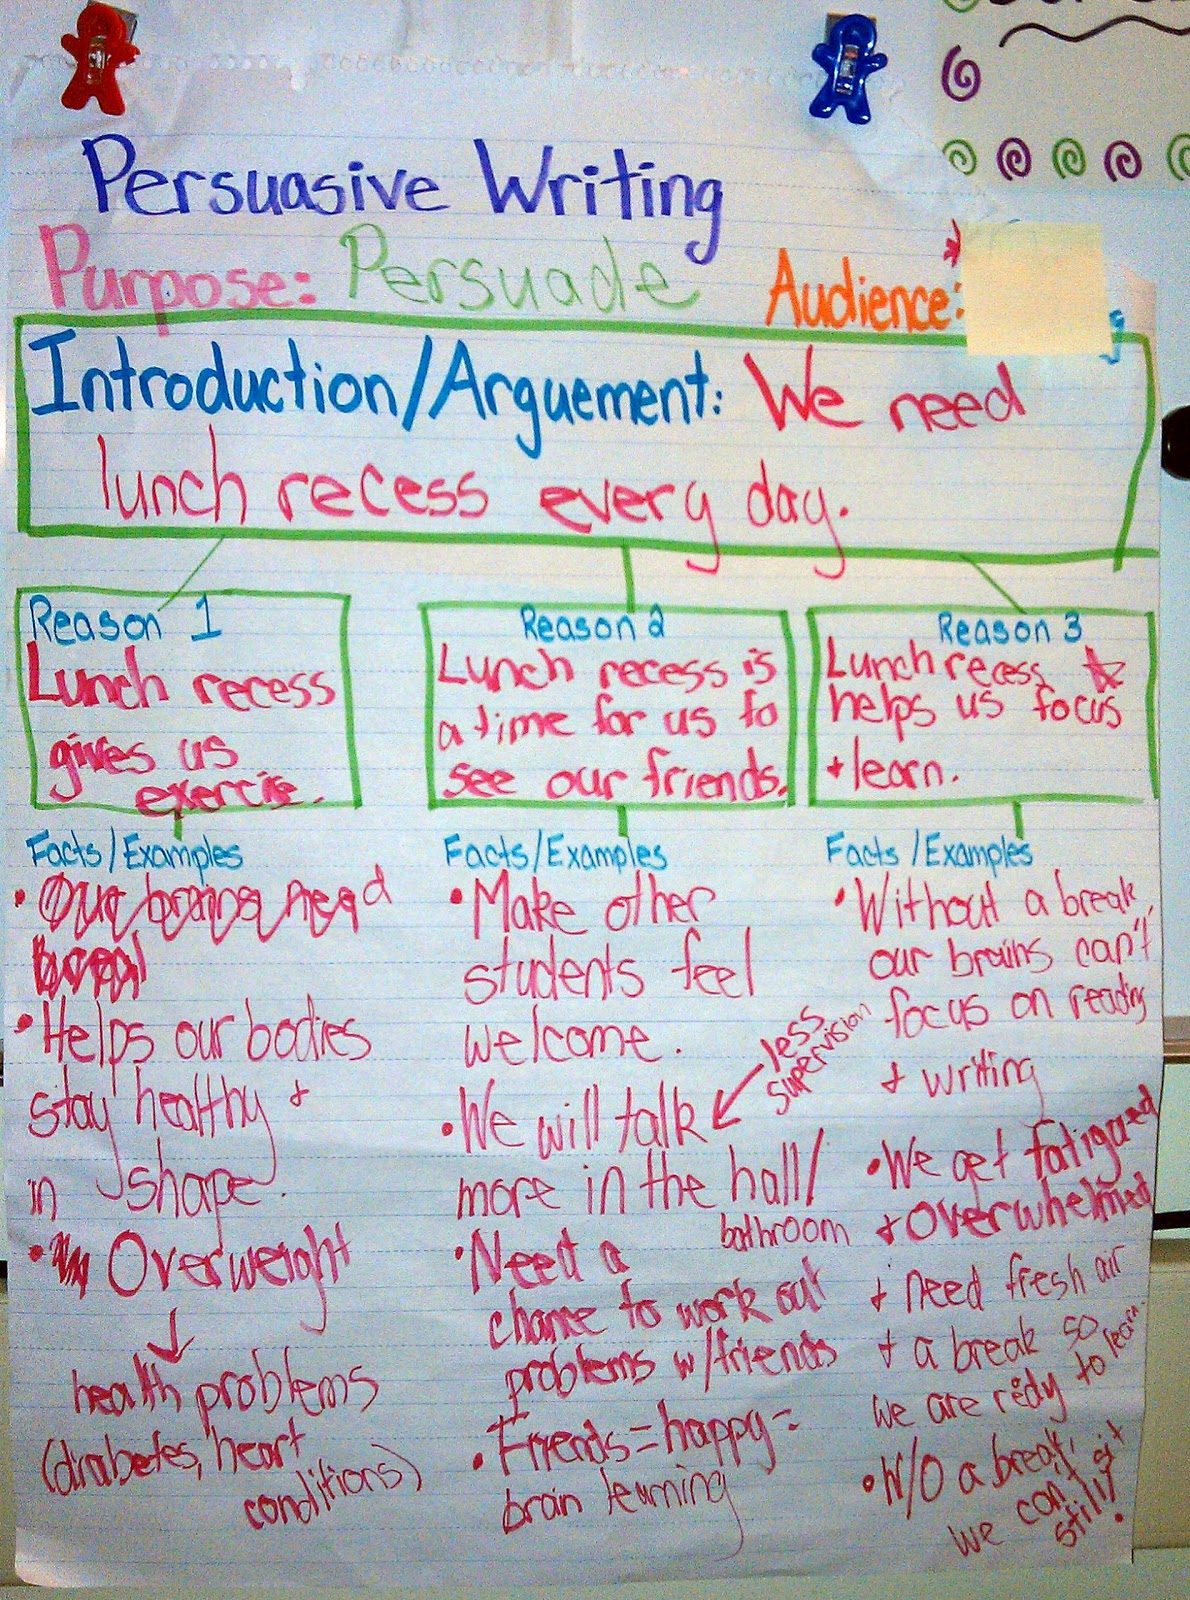 Persuasive Writing
Purpose: Persuade
Audience:
Introduction/Arguement: We need
lunch recess every day.
Reason 1
Lunch recess
gives us
exercise.
Facts/Examples
• Our brains need
• Helps our bodies
stay healthy +
in shape.
• Overweight
↓
health problems
(diabetes, heart
conditions)
Reason 2
Lunch recess is
a time for us to
see our friends.
Facts/Examples
• Make other
students feel
welcome.
less
supervision
• We will talk
more in the hall/
bathroom
• Need a
chance to work out
problems w/friends
• Friends = happy =
brain learning
Reason 3
Lunch recess
helps us focus
+ learn.
Facts/Examples
• Without a break,
our brains can't
focus on reading
+ writing
• We get fatigued
+ overwhelmed
+ need fresh air
+ a break so
we are redy to learn.
• W/O a break,
we can't sit
still!